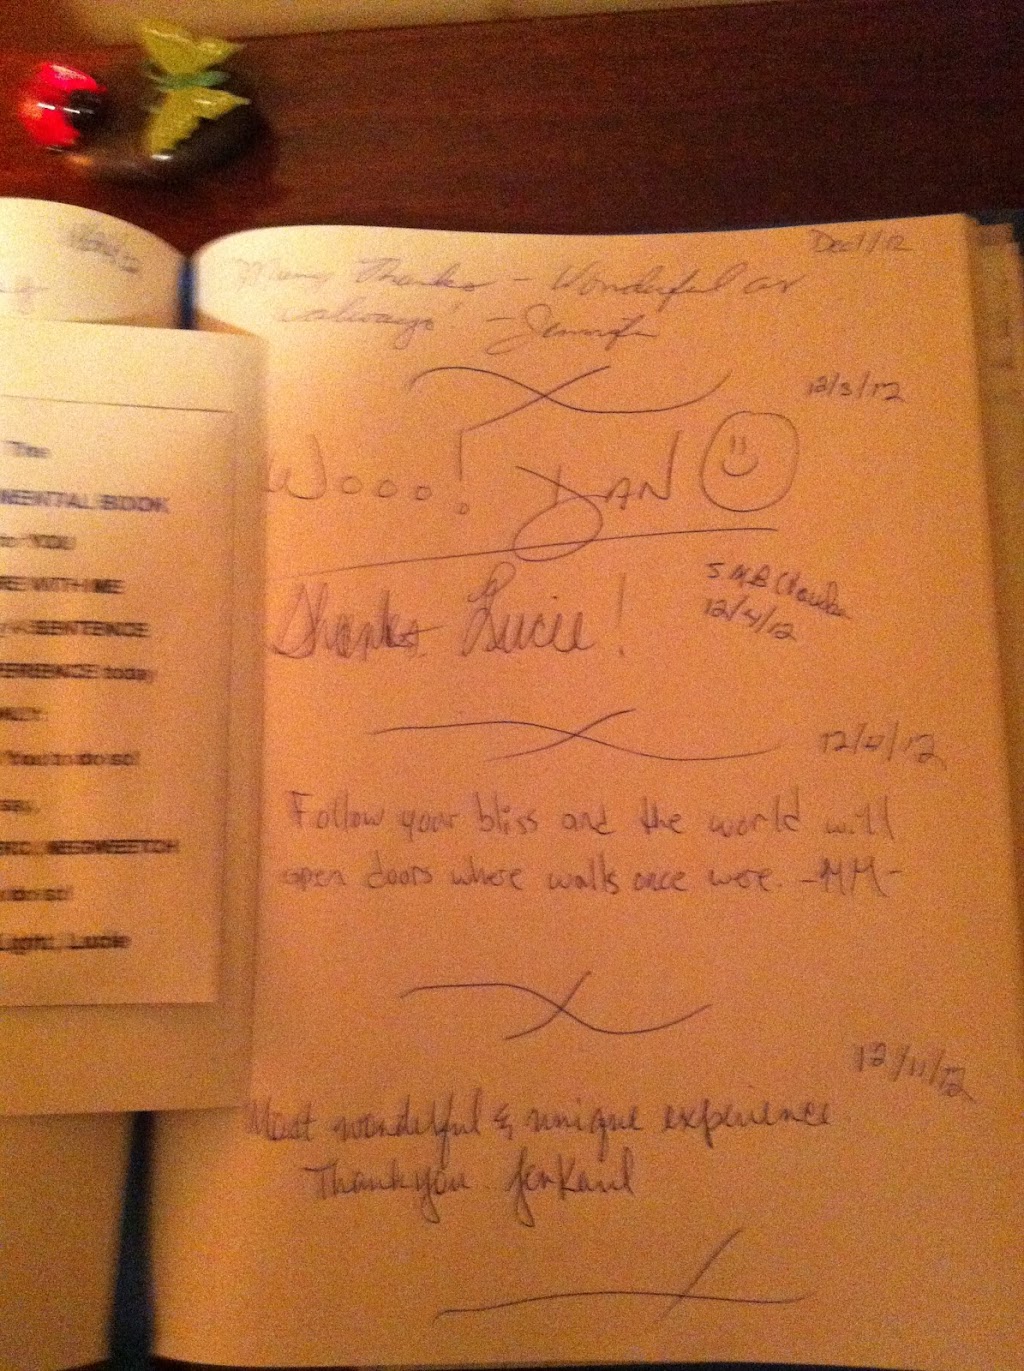 The
MENTAL BOOK
to YOU
RE WITH ME
SENTENCE
PERIENCE today
You to do so!
MEEGWEETCH
do so!
Light, Lucie
Dec 1/12
Many Thanks - Wonderful as
always! - Jennifer
12/3/12
Wooo! DAN
12/4/12
Thanks Lucie!
12/4/12
Follow your bliss and the world will
open doors where walls once were. -MM-
12/11/12
Most wonderful & unique experience
Thank you. Jen Kaul